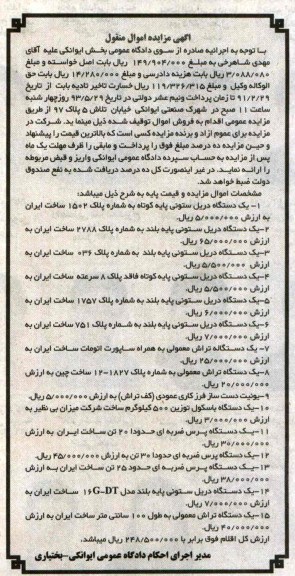 آگهی مزایده اموال منقول
با توجه به اجرائیه صادره از سوی دادگاه عمومی بخش ایوانکی علیه آقای
مهدی شاهرخی به مبلغ ۱۴۹/۹۰۴/۰۰۰ ریال بابت اصل خواسته و مبلغ
۳/۰۸۸/۰۸۰ ریال بابت هزینه دادرسی و مبلغ ۱۴/۲۸۰/۰۰۰ ریال بابت حق
الوکاله وکیل و مبلغ ۱۱۹/۳۲۶/۳۱۵ ریال خسارت تاخیر تادیه بابت از تاریخ
۹۱/۲/۲۹ تا زمان پرداخت ونیم عشر دولتی در تاریخ ۹۳/۵/۲۹ روزچهار شنبه
ساعت ۱۱ صبح در شهرک صنعتی ایوانکی خیابان تلاش ۵ پلاک ۹۷ از طریق
مزایده عمومی اقدام به فروش اموال توقیف شده ذیل مینماید. شرکت در
مزایده برای عموم آزاد و برنده مزایده کسی است که بالاترین قیمت را پیشنهاد
و حین مزایده ده درصد مبلغ فوق را پرداخت و مابقی را ظرف مهلت یک ماه
پس از مزایده به حساب سپرده دادگاه عمومی ایوانکی واریز و قبض مربوطه
را ارائه نماید. در غیر اینصورت کل ده درصد دریافت شده به نفع صندوق
دولت ضبط خواهد شد.
مشخصات اموال مزایده و قیمت پایه به شرح ذیل میباشد:
۱- یک دستگاه دریل ستونی پایه کوتاه به شماره پلاک ۱۵۰۲ ساخت ایران
به ارزش ۵/۰۰۰/۰۰۰ ریال.
۲-یک دستگاه دریل ستونی پایه بلند به شماره پلاک ۲۷۸۸ ساخت ایران به
ارزش ۶۵/۰۰۰/۰۰۰ ریال.
۳-یک دستگاه دریل ستونی پایه بلند به شماره پلاک ۰۳۶ ساخت ایران به
ارزش ۵/۵۰۰/۰۰۰ ریال.
۴-یک دستگاه دریل ستونی پایه کوتاه فاقد پلاک ۸ سرعته ساخت ایران به
ارزش ۵/۵۰۰/۰۰۰ ریال.
۵-یک دستگاه دریل ستونی پایه بلند به شماره پلاک ۱۷۵۷ ساخت ایران به
ارزش ۶/۰۰۰/۰۰۰ ریال.
۶-یک دستگاه دریل ستونی پایه بلند به شماره پلاک ۷۵۱ ساخت ایران به
ارزش ۷/۰۰۰/۰۰۰ ریال.
۷- یک دستگاه تراش معمولی به همراه ساپورت اتومات ساخت ایران به
ارزش ۲۵/۰۰۰/۰۰۰ ریال.
۸-یک دستگاه تراش معمولی به شماره پلاک ۱۸۲۷-۱۲ ساخت چین به ارزش
۲۰/۰۰۰/۰۰۰ ریال.
۹-یونیت دست ساز فرز کاری عمودی (کف تراش) به ارزش ۵/۰۰۰/۰۰۰ ریال.
۱۰-یک دستگاه باسکول توزین ۵۰۰ کیلوگرم ساخت شرکت میزان بی نظیر به
ارزش ۳/۰۰۰/۰۰۰ ریال.
۱۱-یک دستگاه پرس ضربه ای حدودا ۲۰ تن ساخت ایران به ارزش
۳۰/۰۰۰/۰۰۰ ریال.
۱۲-یک دستگاه پرس ضربه ای حدودا ۳۰ تن به ارزش ۴۵/۰۰۰/۰۰۰ ریال.
۱۳-یک دستگاه پرس ضربه ای حدود ۲۵ تن ساخت ایران به ارزش
۳۸/۰۰۰/۰۰۰ ریال.
۱۴-یک دستگاه دریل ستونی پایه بلند مدل ۱۶G-DT ساخت ایران به
ارزش ۷/۰۰۰/۰۰۰ ریال.
۱۵-یک دستگاه تراش معمولی به طول ۱۰۰ سانتی متر ساخت ایران به
ارزش ۴۰/۰۰۰/۰۰۰ ریال.
ارزش کل اقلام فوق برابر با ۲۴۸/۵۰۰/۰۰۰ ریال میباشد.
مدیر اجرای احکام دادگاه عمومی ایوانکی-بختیاری